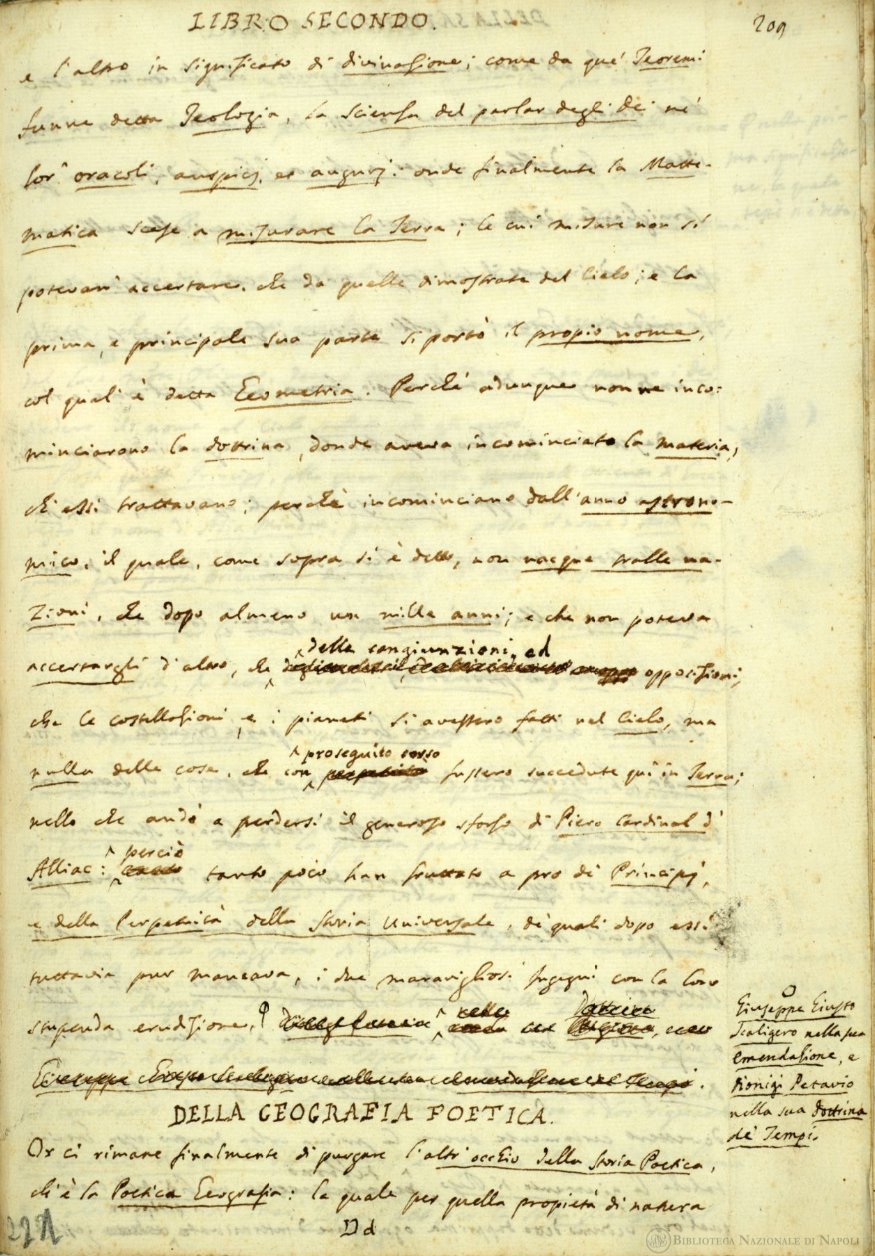 LIBRO SECONDO.
209
e l'altro in significato di divinazione; come da que' Teoremi
funne detta Teologia, la scienza del parlar degli Dei ne'
lor' oracoli, auspicj, et augurj: onde finalmente la Matte-
matica scese a misurare la Terra; le cui misure non si
potevan' accertare, che da quelle dimostrate del Cielo; e la
prima, e principale sua parte si portò il propio nome,
col qual' è detta Geometria. Perchè adunque non ne inco-
minciarono la dottrina, donde aveva incominciato la materia,
ch'essi trattavano; perchè incominciano dall'anno astrono-
mico, il quale, come sopra si è detto, non nacque tralle na-
zioni, che dopo almeno un mille anni; e che non poteva
accertargli d'altro, che delle congiunzioni, ed opposizioni,
che le costellazioni, e i pianeti si avessero fatti nel Cielo, ma
nulla delle cose, che con proseguito corso fussero succedute quì in Terra;
nello che andò a perdersi il generoso sforzo di Piero Cardinal d'
Alliac: perciò tanto poco han fruttato a pro de' Principj,
e della Perpetuità della Storia Universale, de' quali dopo essi
tuttavia pur mancava, i due maravigliosi Ingegni con la loro
stupenda erudizione,
Giuseppe Giusto
Scaligero nella sua
emendazione, e
Dionigi Petavio
nella sua dottrina
de' Tempi.
DELLA GEOGRAFIA POETICA.
Or ci rimane finalmente di purgare l'altr'occhio della Storia Poetica,
ch'è la Poetica Geografia: la quale per quella propietà di natura
Dd
BIBLIOTECA NAZIONALE DI NAPOLI